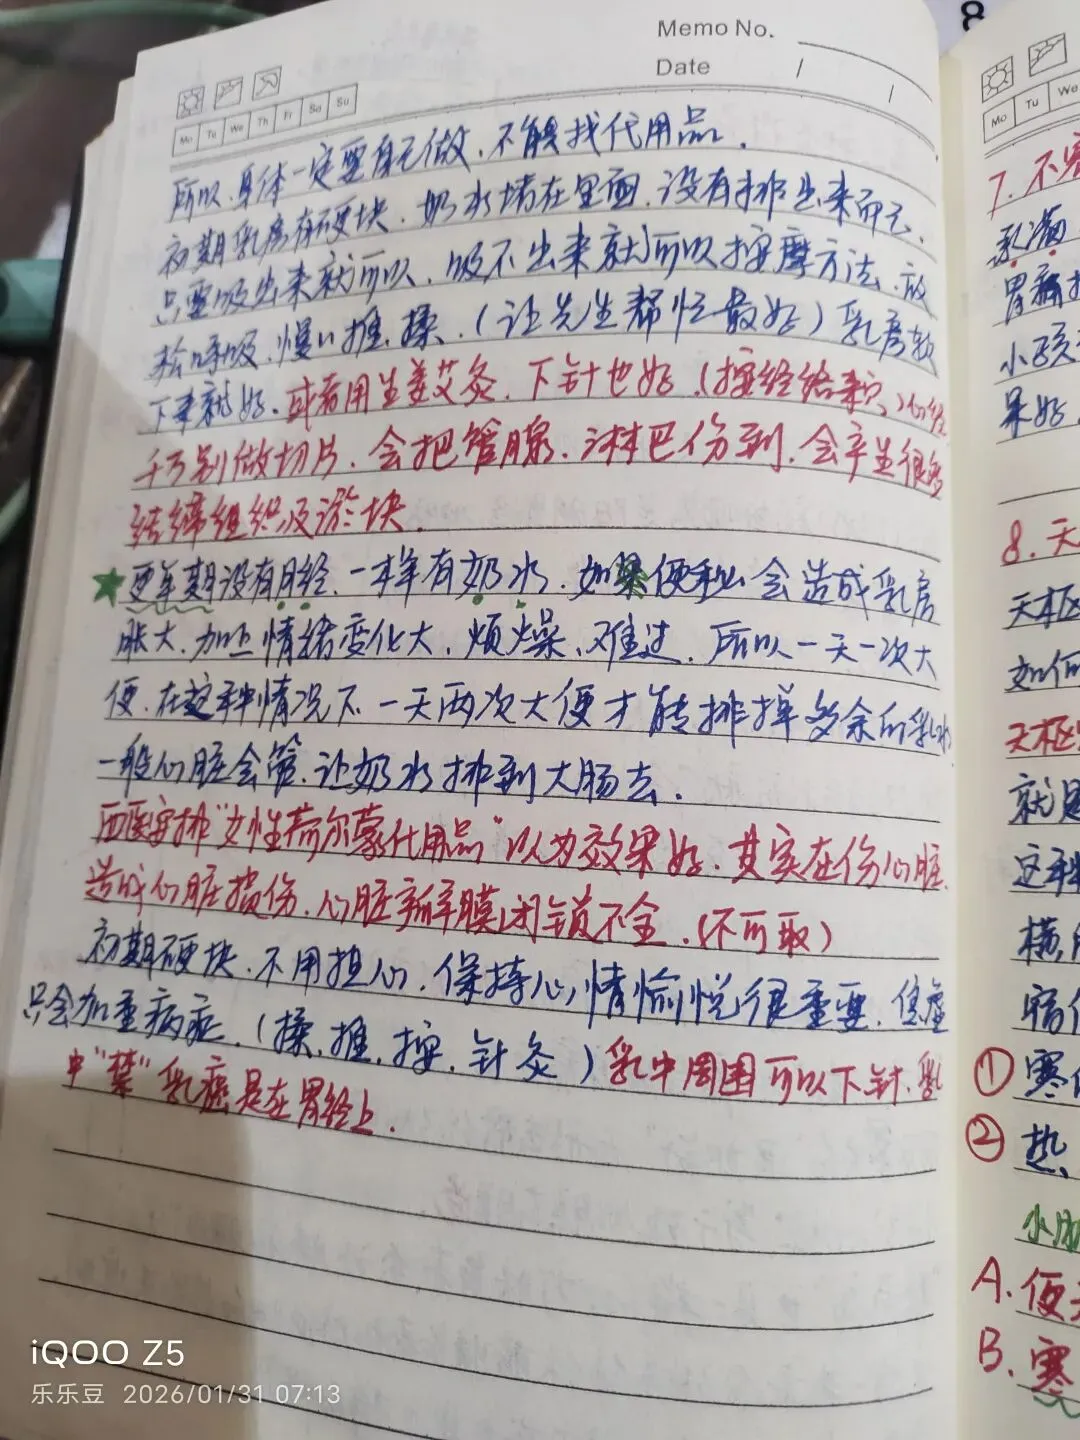 Memo No.
Date / /
Mo Tu We Th Fr Sa Su
所以.身体一定要自己做.不能找代用品.
初期乳房有硬块.奶水堵在里面.没有排出来而已.
只要吸出来就可以.吸不出来就可以按摩方法.放
松呼吸.慢慢推.揉.(让先生帮忙最好)乳房软
下来就好.或者用生姜艾灸.下针也好(按经络来)
千万别做切片.会把管腺.淋巴伤到.会产生很多
结缔组织及淤块.
★更年期没有月经.一样有奶水.如果便秘会造成乳房
胀大.加上情绪变化大.烦燥、难过.所以一天一次大
便.在这种情况下.一天两次大便才能排掉多余的乳水
一般心脏会管.让奶水排到大肠去.
西医安排"女性荷尔蒙代用品"以为效果好.其实在伤心脏.
造成心脏损伤.心脏瓣膜闭锁不全.(不可取)
初期硬块.不用担心.保持心情愉悦很重要.焦虑
只会加重病症.(揉.推.按.针灸)乳中周围可以下针.乳
中"禁"乳癌是在胃经上.
8
Mo Tu We
7.不
乳
胃
小孩
果好.
8.天
天枢
如何
天枢
就是
这种
横
①寒
②热、
小肠
A.便
B.寒
iQOO Z5
乐乐豆 2026/01/31 07:13